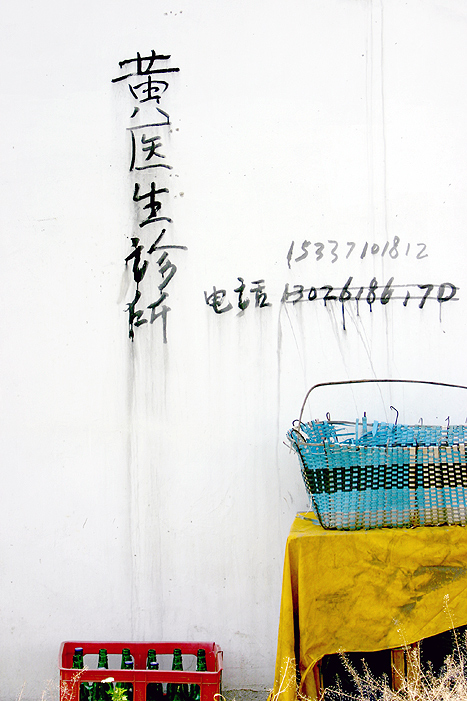 黄医生诊所
15337101812
电话 13026186170